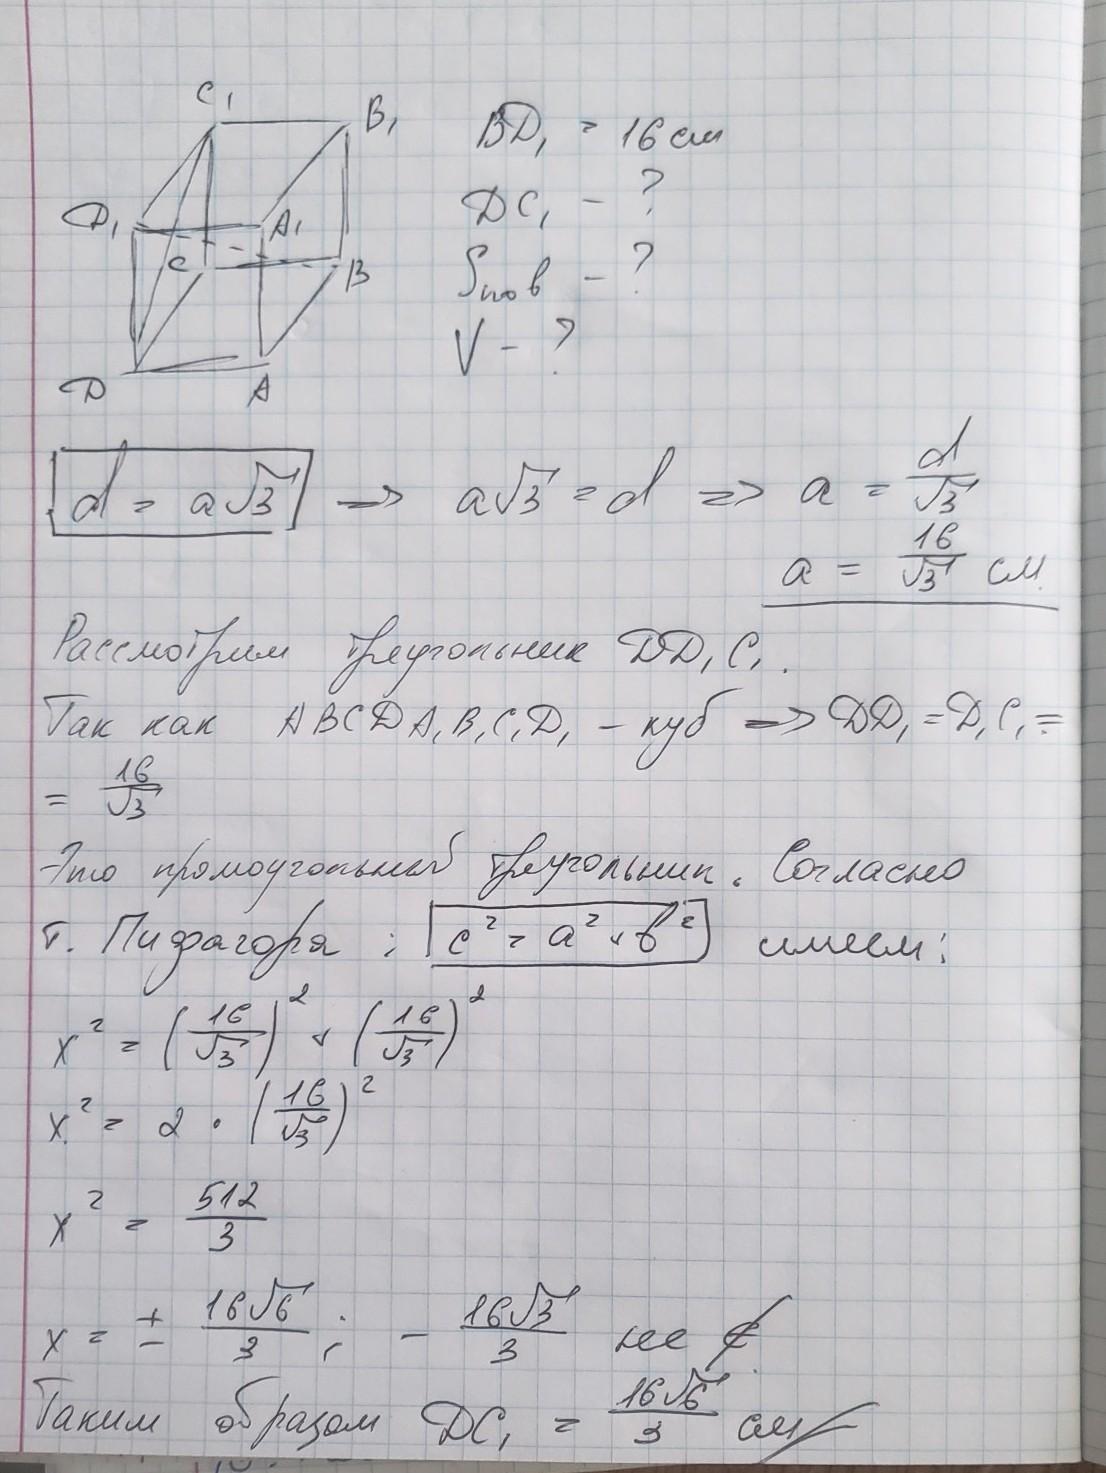 C₁
B₁
D₁
A₁
C
B
D
A
BD₁ = 16 см
DC₁ - ?
Sпов - ?
V - ?
d = a√3 => a√3 = d => a = d/√3
a = 16/√3 см
Рассмотрим треугольник DD₁C₁.
Так как ABCDA₁B₁C₁D₁ - куб => DD₁ = D₁C₁ =
= 16/√3
Это прямоугольный треугольник. Согласно
т. Пифагора : c² = a² + b² имеем:
x² = (16/√3)² + (16/√3)²
x² = 2 · (16/√3)²
x² = 512/3
x = ± 16√6/3 ; - 16√3/3 не ∉
Таким образом DC₁ = 16√6/3 см